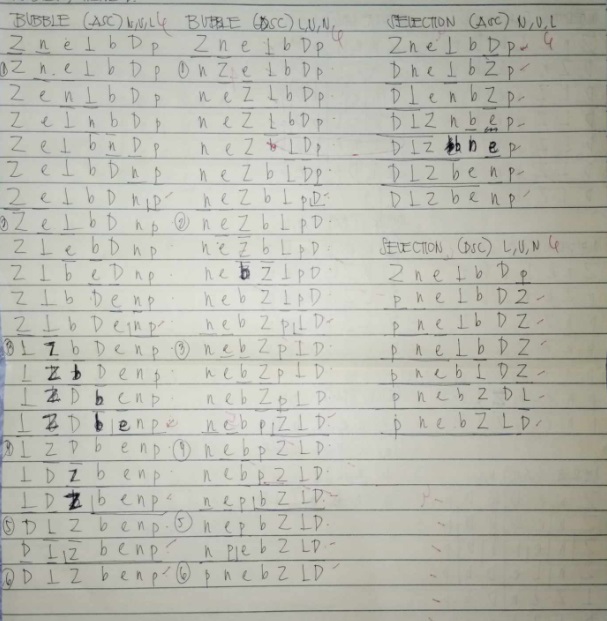 BUBBLE (ASC) N,U,L
Z n e I b D p
① Z n e I b D p
Z e n I b D p
Z e I n b D p
Z e I b n D p
Z e I b D n p
Z e I b D n|p
② Z e I b D n p
Z I e b D n p
Z I b e D n p
Z I b D e n p
Z I b D e|n p
③ I Z b D e n p
I Z b D e n p
I Z D b e n p
I Z D b|e n p
④ I Z D b e n p
I D Z b e n p
I D Z|b e n p
⑤ D I Z b e n p
D I|Z b e n p
⑥ D I Z b e n p
BUBBLE (DSC) L,U,N
Z n e I b D p
① n Z e I b D p
n e Z I b D p
n e Z I b D p
n e Z b I D p
n e Z b I D p
n e Z b I p D
② n e Z b I p D
n e Z b I p D
n e b Z I p D
n e b Z I p D
n e b Z p|I D
③ n e b Z p I D
n e b Z p I D
n e b Z p I D
n e b p|Z I D
④ n e b p Z I D
n e b p Z I D
n e p|b Z I D
⑤ n e p b Z I D
n p|e b Z I D
⑥ p n e b Z I D
SELECTION (ASC) N,U,L
Z n e I b D p
D n e I b Z p
D I e n b Z p
D I Z n b e p
D I Z b n e p
D I Z b e n p
D I Z b e n p
SELECTION (DSC) L,U,N
Z n e I b D p
p n e I b D Z
p n e I b D Z
p n e I b D Z
p n e b I D Z
p n e b Z D I
p n e b Z I D